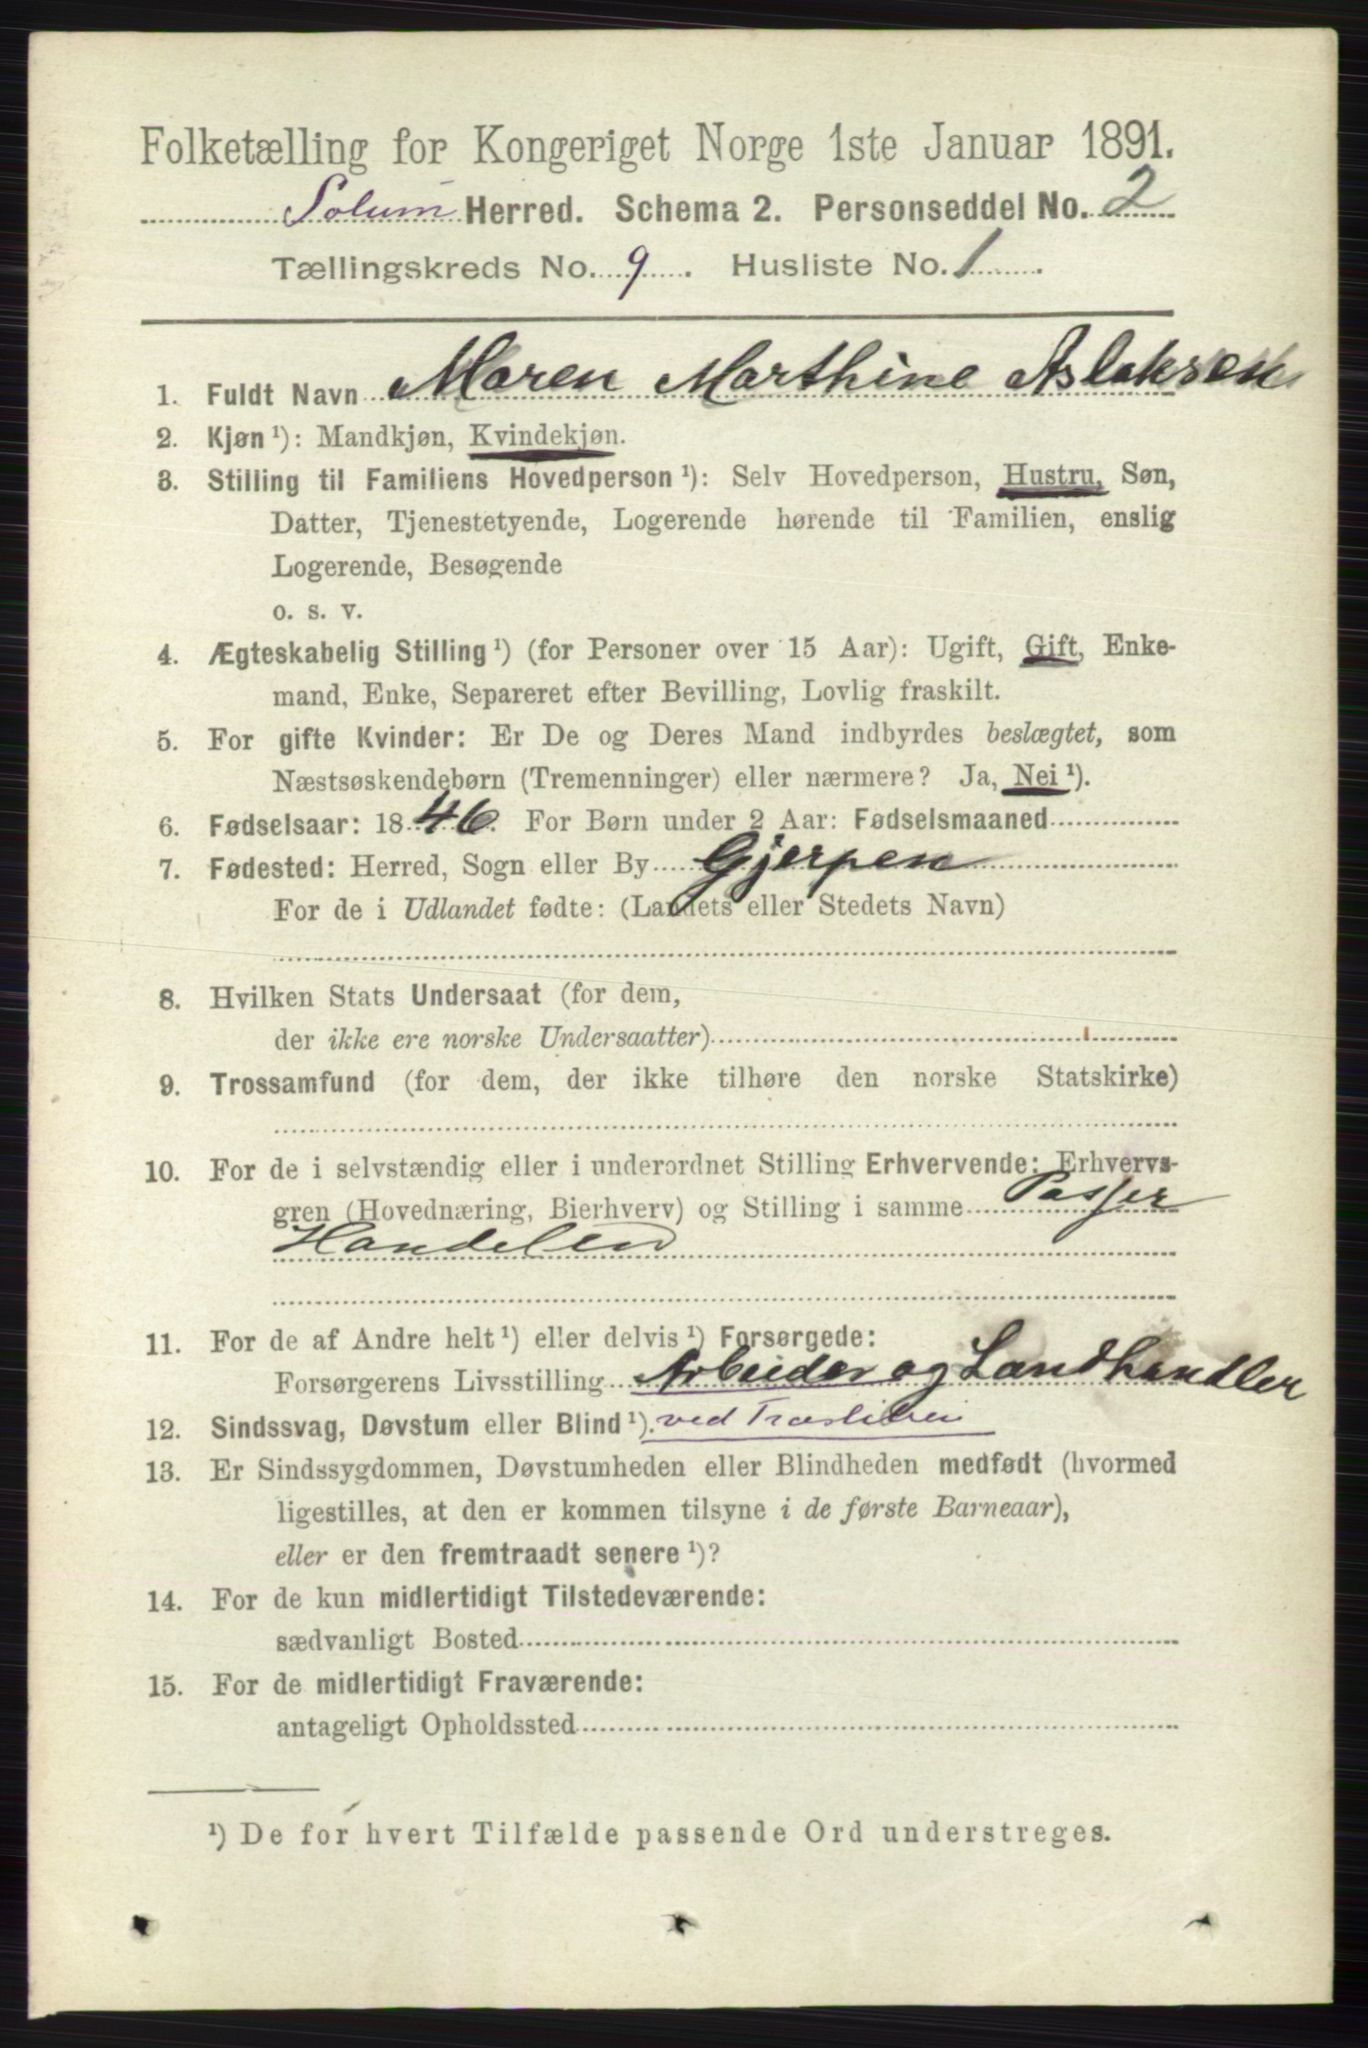 Folketælling for Kongeriget Norge 1ste Januar 1891.
Solum Herred. Schema 2. Personseddel No. 2
Tællingskreds No. 9. Husliste No. 1.
1. Fuldt Navn Maren Marthine Aslaksen
2. Kjøn ¹): Mandkjøn, Kvindekjøn.
3. Stilling til Familiens Hovedperson ¹): Selv Hovedperson, Hustru, Søn,
Datter, Tjenestetyende, Logerende hørende til Familien, enslig
Logerende, Besøgende
o. s. v.
4. Ægteskabelig Stilling ¹) (for Personer over 15 Aar): Ugift, Gift, Enke-
mand, Enke, Separeret efter Bevilling, Lovlig fraskilt.
5. For gifte Kvinder: Er De og Deres Mand indbyrdes beslægtet, som
Næstsøskendebørn (Tremenninger) eller nærmere? Ja, Nei ¹).
6. Fødselsaar: 1846. For Børn under 2 Aar: Fødselsmaaned
7. Fødested: Herred, Sogn eller By Gjerpen
For de i Udlandet fødte: (Landets eller Stedets Navn)
8. Hvilken Stats Undersaat (for dem,
der ikke ere norske Undersaatter)
9. Trossamfund (for dem, der ikke tilhøre den norske Statskirke)
10. For de i selvstændig eller i underordnet Stilling Erhvervende: Erhvervs-
gren (Hovednæring, Bierhverv) og Stilling i samme Passer
Handelen
11. For de af Andre helt ¹) eller delvis ¹) Forsørgede:
Forsørgerens Livsstilling Arbeider og Landhandler
12. Sindssvag, Døvstum eller Blind ¹). ved
13. Er Sindssygdommen, Døvstumheden eller Blindheden medfødt (hvormed
ligestilles, at den er kommen tilsyne i de første Barneaar),
eller er den fremtraadt senere ¹)?
14. For de kun midlertidigt Tilstedeværende:
sædvanligt Bosted
15. For de midlertidigt Fraværende:
antageligt Opholdssted
¹) De for hvert Tilfælde passende Ord understreges.